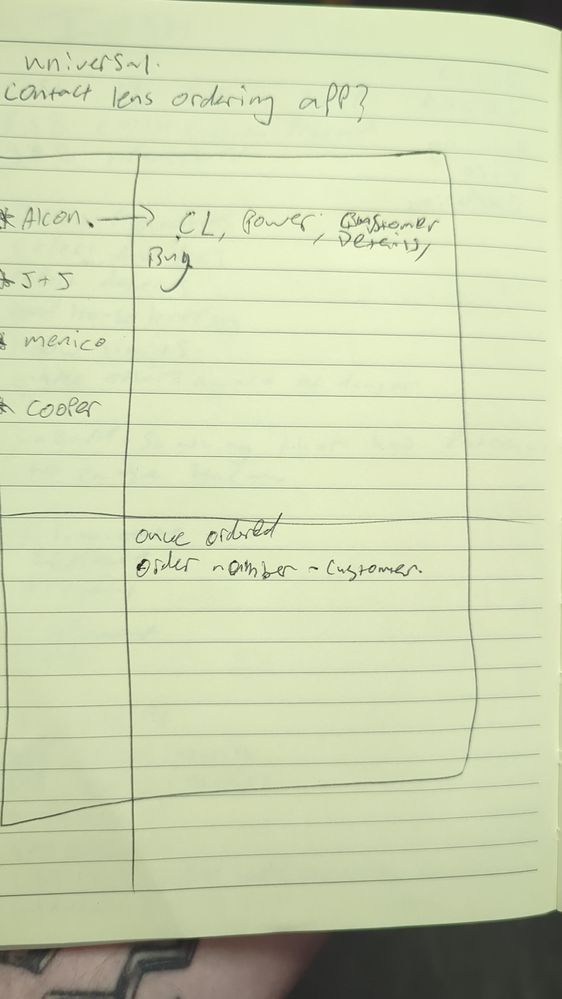 universal.
contact lens ordering app?
* Alcon. → CL, Power, Customer
Details,
Buy
* J+J
* menico
* Cooper
once ordered
order number - customer.